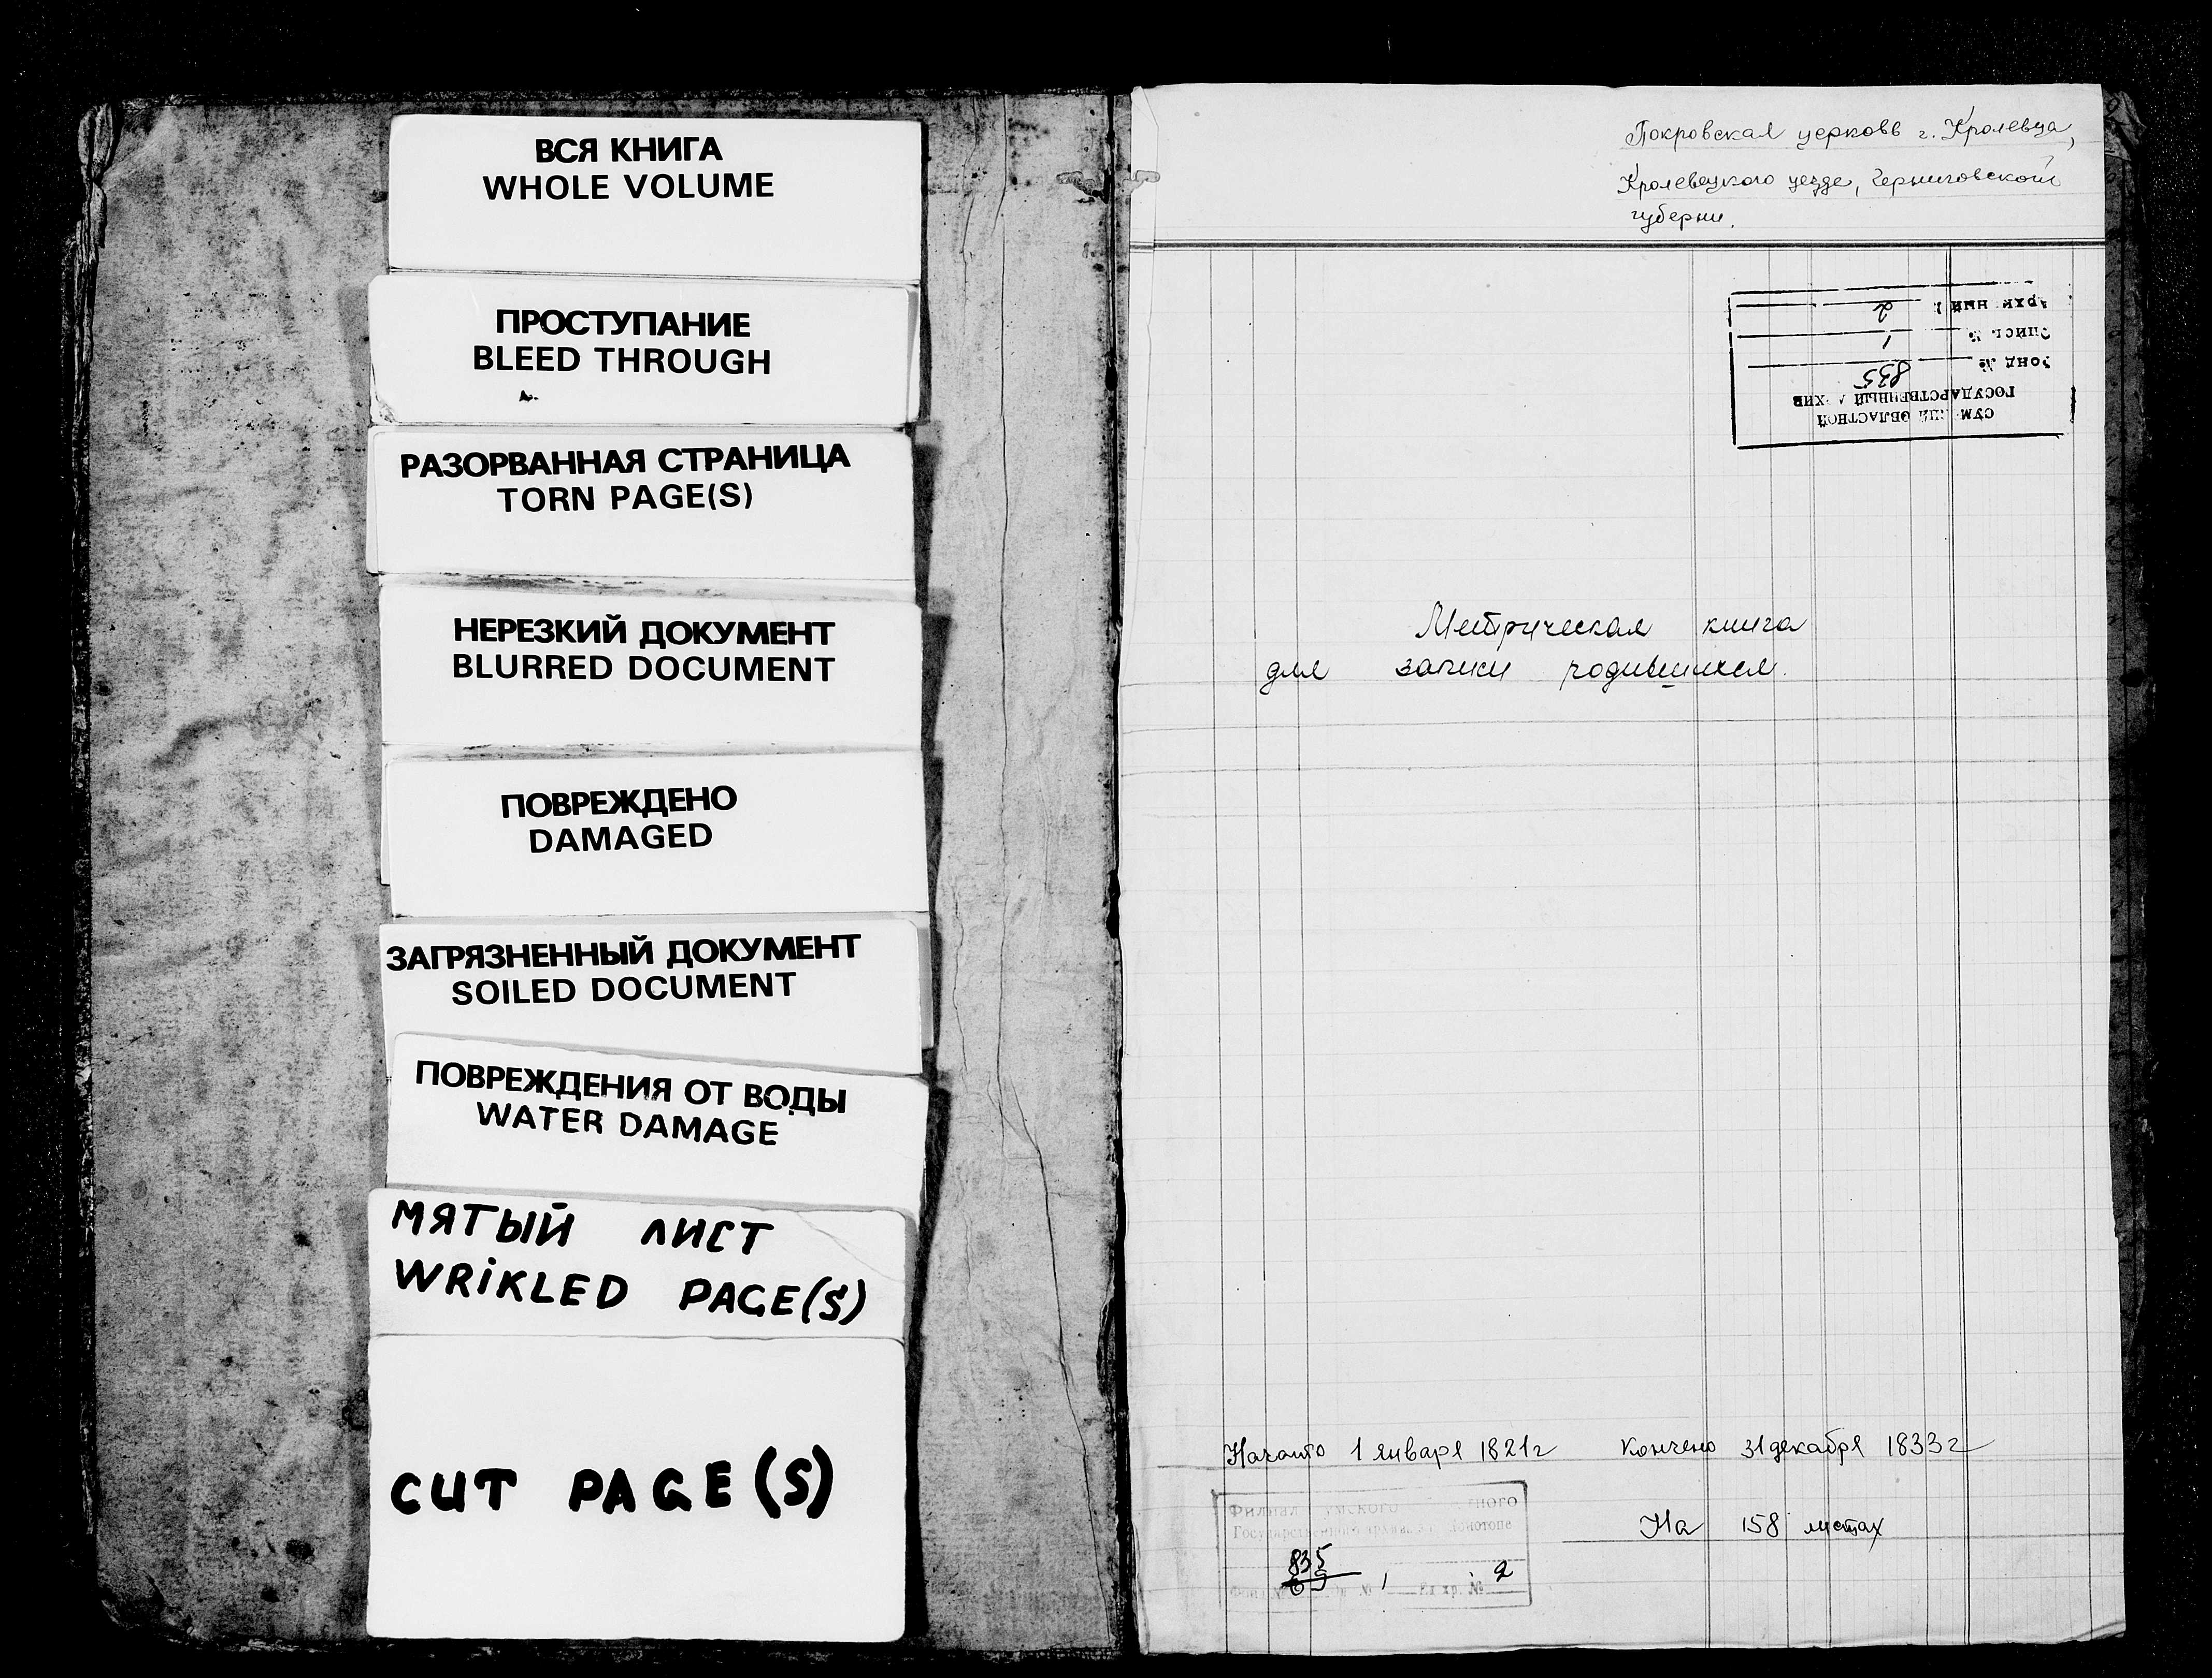 ВСЯ КНИГА
WHOLE VOLUME
ПРОСТУПАНИЕ
BLEED THROUGH
РАЗОРВАННАЯ СТРАНИЦА
TORN PAGE(S)
НЕРЕЗКИЙ ДОКУМЕНТ
BLURRED DOCUMENT
ПОВРЕЖДЕНО
DAMAGED
ЗАГРЯЗНЕННЫЙ ДОКУМЕНТ
SOILED DOCUMENT
ПОВРЕЖДЕНИЯ ОТ ВОДЫ
WATER DAMAGE
МЯТЫЙ ЛИСТ
WRiKLED PAGE(S)
CUT PAGE(S)
Покровская церковь г. Кролевца,
Кролевецкого уезде, Черниговской
губерни.
СУМСКИЙ ОБЛАСТНОЙ
ГОСУДАРСТВЕННЫЙ АРХИВ
Фонд № 835
Опись № 1
2
Метрическая книга
для записи родившихся.
Начато 1 января 1821г Кончено 31 декабря 1833г
На 158 листах
Филиал Сумского областного
Государственного архива в г. Конотопе
835
69 № 1 Ед хр. № 2